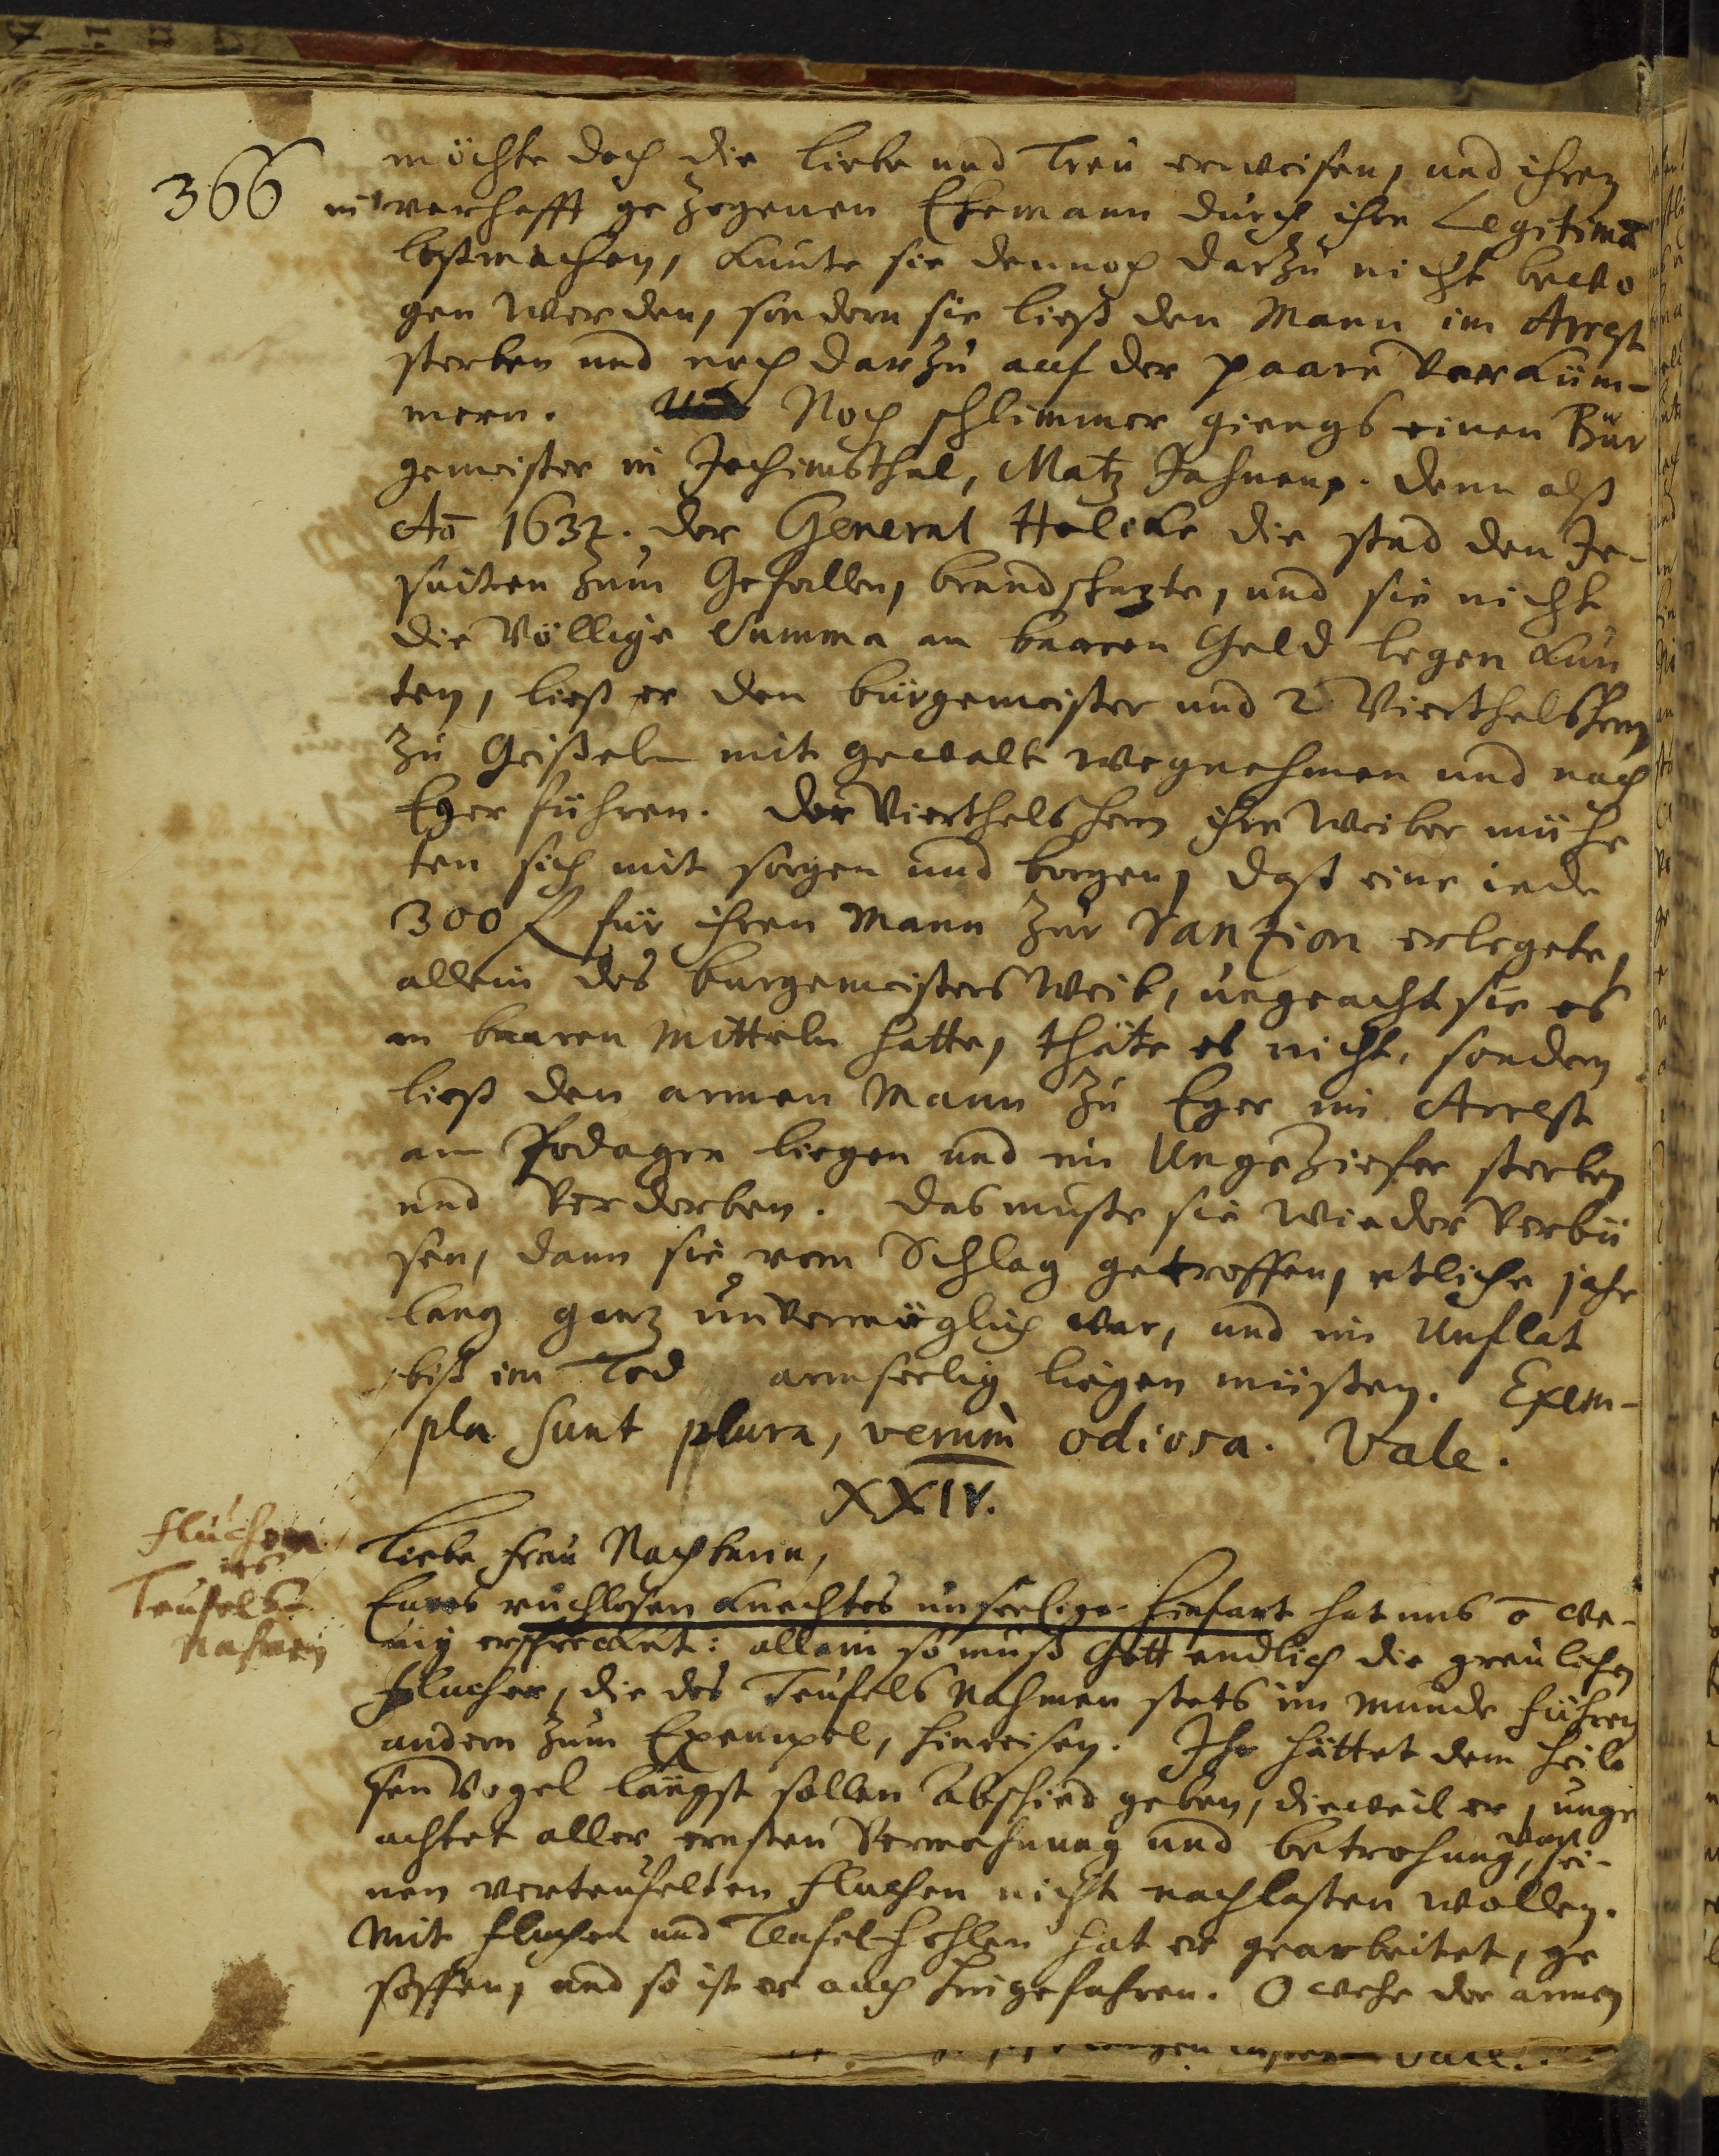 366
möchte doch die Liebe und Treu erweisen, und ihren
in verhafft gezogenen Ehemann durch ihre Legitimā
loßmachen, kunte sie dennoch darzu nicht bewo
gen werden, sondern sie ließ den Mann im Arrest
sterben und noch darzu auf der paare verküm-
mern. Noch schlimmer giengs einen Bür
gemeister in Jochimsthal, Matz Jahnen. Denn alß
Aō 1632. der General Holcke die stad den Je-
suiten zum Gefallen, brandschazte, und sie nicht
die Völlige Summa an baaren Geld legen kun
ten, ließ er den bürgemeister und 2 Vierthelsherrn
zu Geißeln mit gewalt wegnehmen und nach
Eger führen. Der Vierthelsherrn ihre Weiber mühe
ten sich mit sorgen und borgen, daß eine iede
300 f. für ihren Mann zur Ranzion erlegete,
allein des burgemeisters Weib, ungeacht sie es
an baaren Mitteln hatte, thäte es nicht, sondern
ließ den armen Mann zu Eger im Arrest
am Podagra liegen und im Ungeziefer sterben
und verderben. Das muste sie wieder verbü
sen, dann sie vom Schlag getroffen, etliche jahr
lang ganz unvermüglich war, und im Unflat
biß im Tod armseelig liegen müßen. Exem-
pla sunt plura, verùm odiosa. Vale.
XXIV.
Fluchen
ins
Teufels
Nahmen
Liebe Frau Nachbarin,
Eures ruchlosen Knechtes unseelige Hinfart hat uns ō we-
nig erschrecket: allein so muß Gott endlich die greulichen
Flucher, die des Teufels Nahmen stets im Munde führen
andern zum Exempel, hinreisen. Ihr hättet dem heilo
sen Vogel längst sollen Abschied geben, dieweil er, unge
achtet aller ernsten Vermahnung und betrohung, von sei-
nen verteufelten Fluchen nicht nachlaßen wollen.
Mit Fluchen und Teufel hohlen hat er gearbeitet, ge
soffen, und so ist er auch hingefahren. O wehe der armen
Vale.